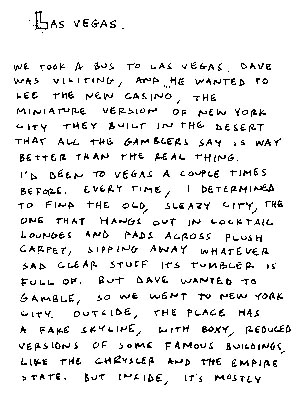 LAS VEGAS.
WE TOOK A BUS TO LAS VEGAS. DAVE
WAS VISITING, AND HE WANTED TO
SEE THE NEW CASINO, THE
MINIATURE VERSION OF NEW YORK
CITY THEY BUILT IN THE DESERT
THAT ALL THE GAMBLERS SAY IS WAY
BETTER THAN THE REAL THING.
I'D BEEN TO VEGAS A COUPLE TIMES
BEFORE. EVERY TIME, I DETERMINED
TO FIND THE OLD, SLEAZY CITY, THE
ONE THAT HANGS OUT IN COCKTAIL
LOUNGES AND PADS ACROSS PLUSH
CARPET, SIPPING AWAY WHATEVER
SAD CLEAR STUFF ITS TUMBLER IS
FULL OF. BUT DAVE WANTED TO
GAMBLE, SO WE WENT TO NEW YORK
CITY. OUTSIDE, THE PLACE HAS
A FAKE SKYLINE, WITH BOXY, REDUCED
VERSIONS OF SOME FAMOUS BUILDINGS,
LIKE THE CHRYSLER AND THE EMPIRE
STATE. BUT INSIDE, IT'S MOSTLY